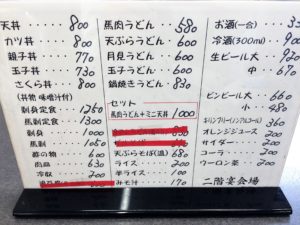 天丼 800
カツ丼 800
親子丼 770
玉子丼
さくら丼 800
(丼物 味噌汁付)
刺身定食 1250
馬刺定食 1300
刺身
馬刺
酢の物 600
肉皿 630
冷奴 200
馬肉うどん 580
天ぷらうどん
月見うどん
玉子うどん
鍋焼きうどん 830
セット
馬肉うどん+ミニ天丼 1000
天ぷらそば(温) 680
ざるそば
みそ汁 170
お酒(一合)
冷酒(300ml) 900
生ビール 大 920
中 670
ビンビール 大 660
小 480
キリンフリー(ノンアルコール) 360
オレンジジュース 200
サイダー 200
コーラ 200
ウーロン茶 200
二階宴会場